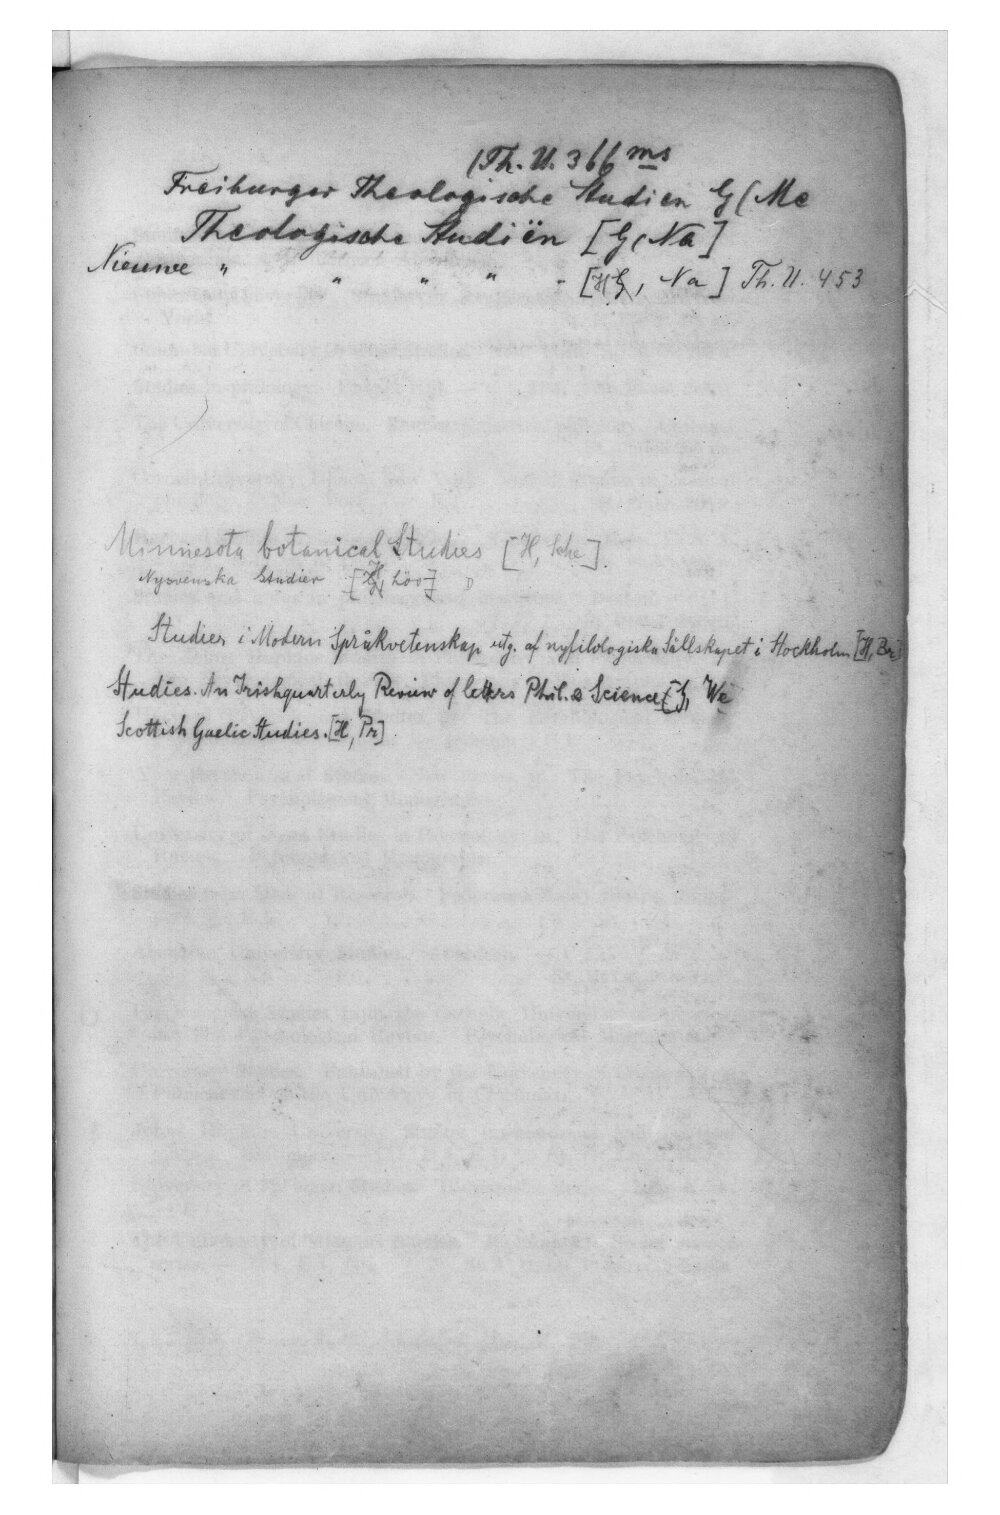 (Th. U. 366 ms
Freiburger Theologische Studien G (Me
Theologische Studiën [G, Na]
Nieuwe " " " " " [HG, Na] Th. U. 453
Minnesota botanical Studies [H, Sche].
Nysvenska Studier [H, Löo] D
Studier i Modern Språkvetenskap utg. af nyfilologiska Sällskapet i Stockholm [H, Br]
Studies. An Irish quarterly Review of letters Phil. & Science [G, We
Scottish Gaelic Studies. [H, Pr].